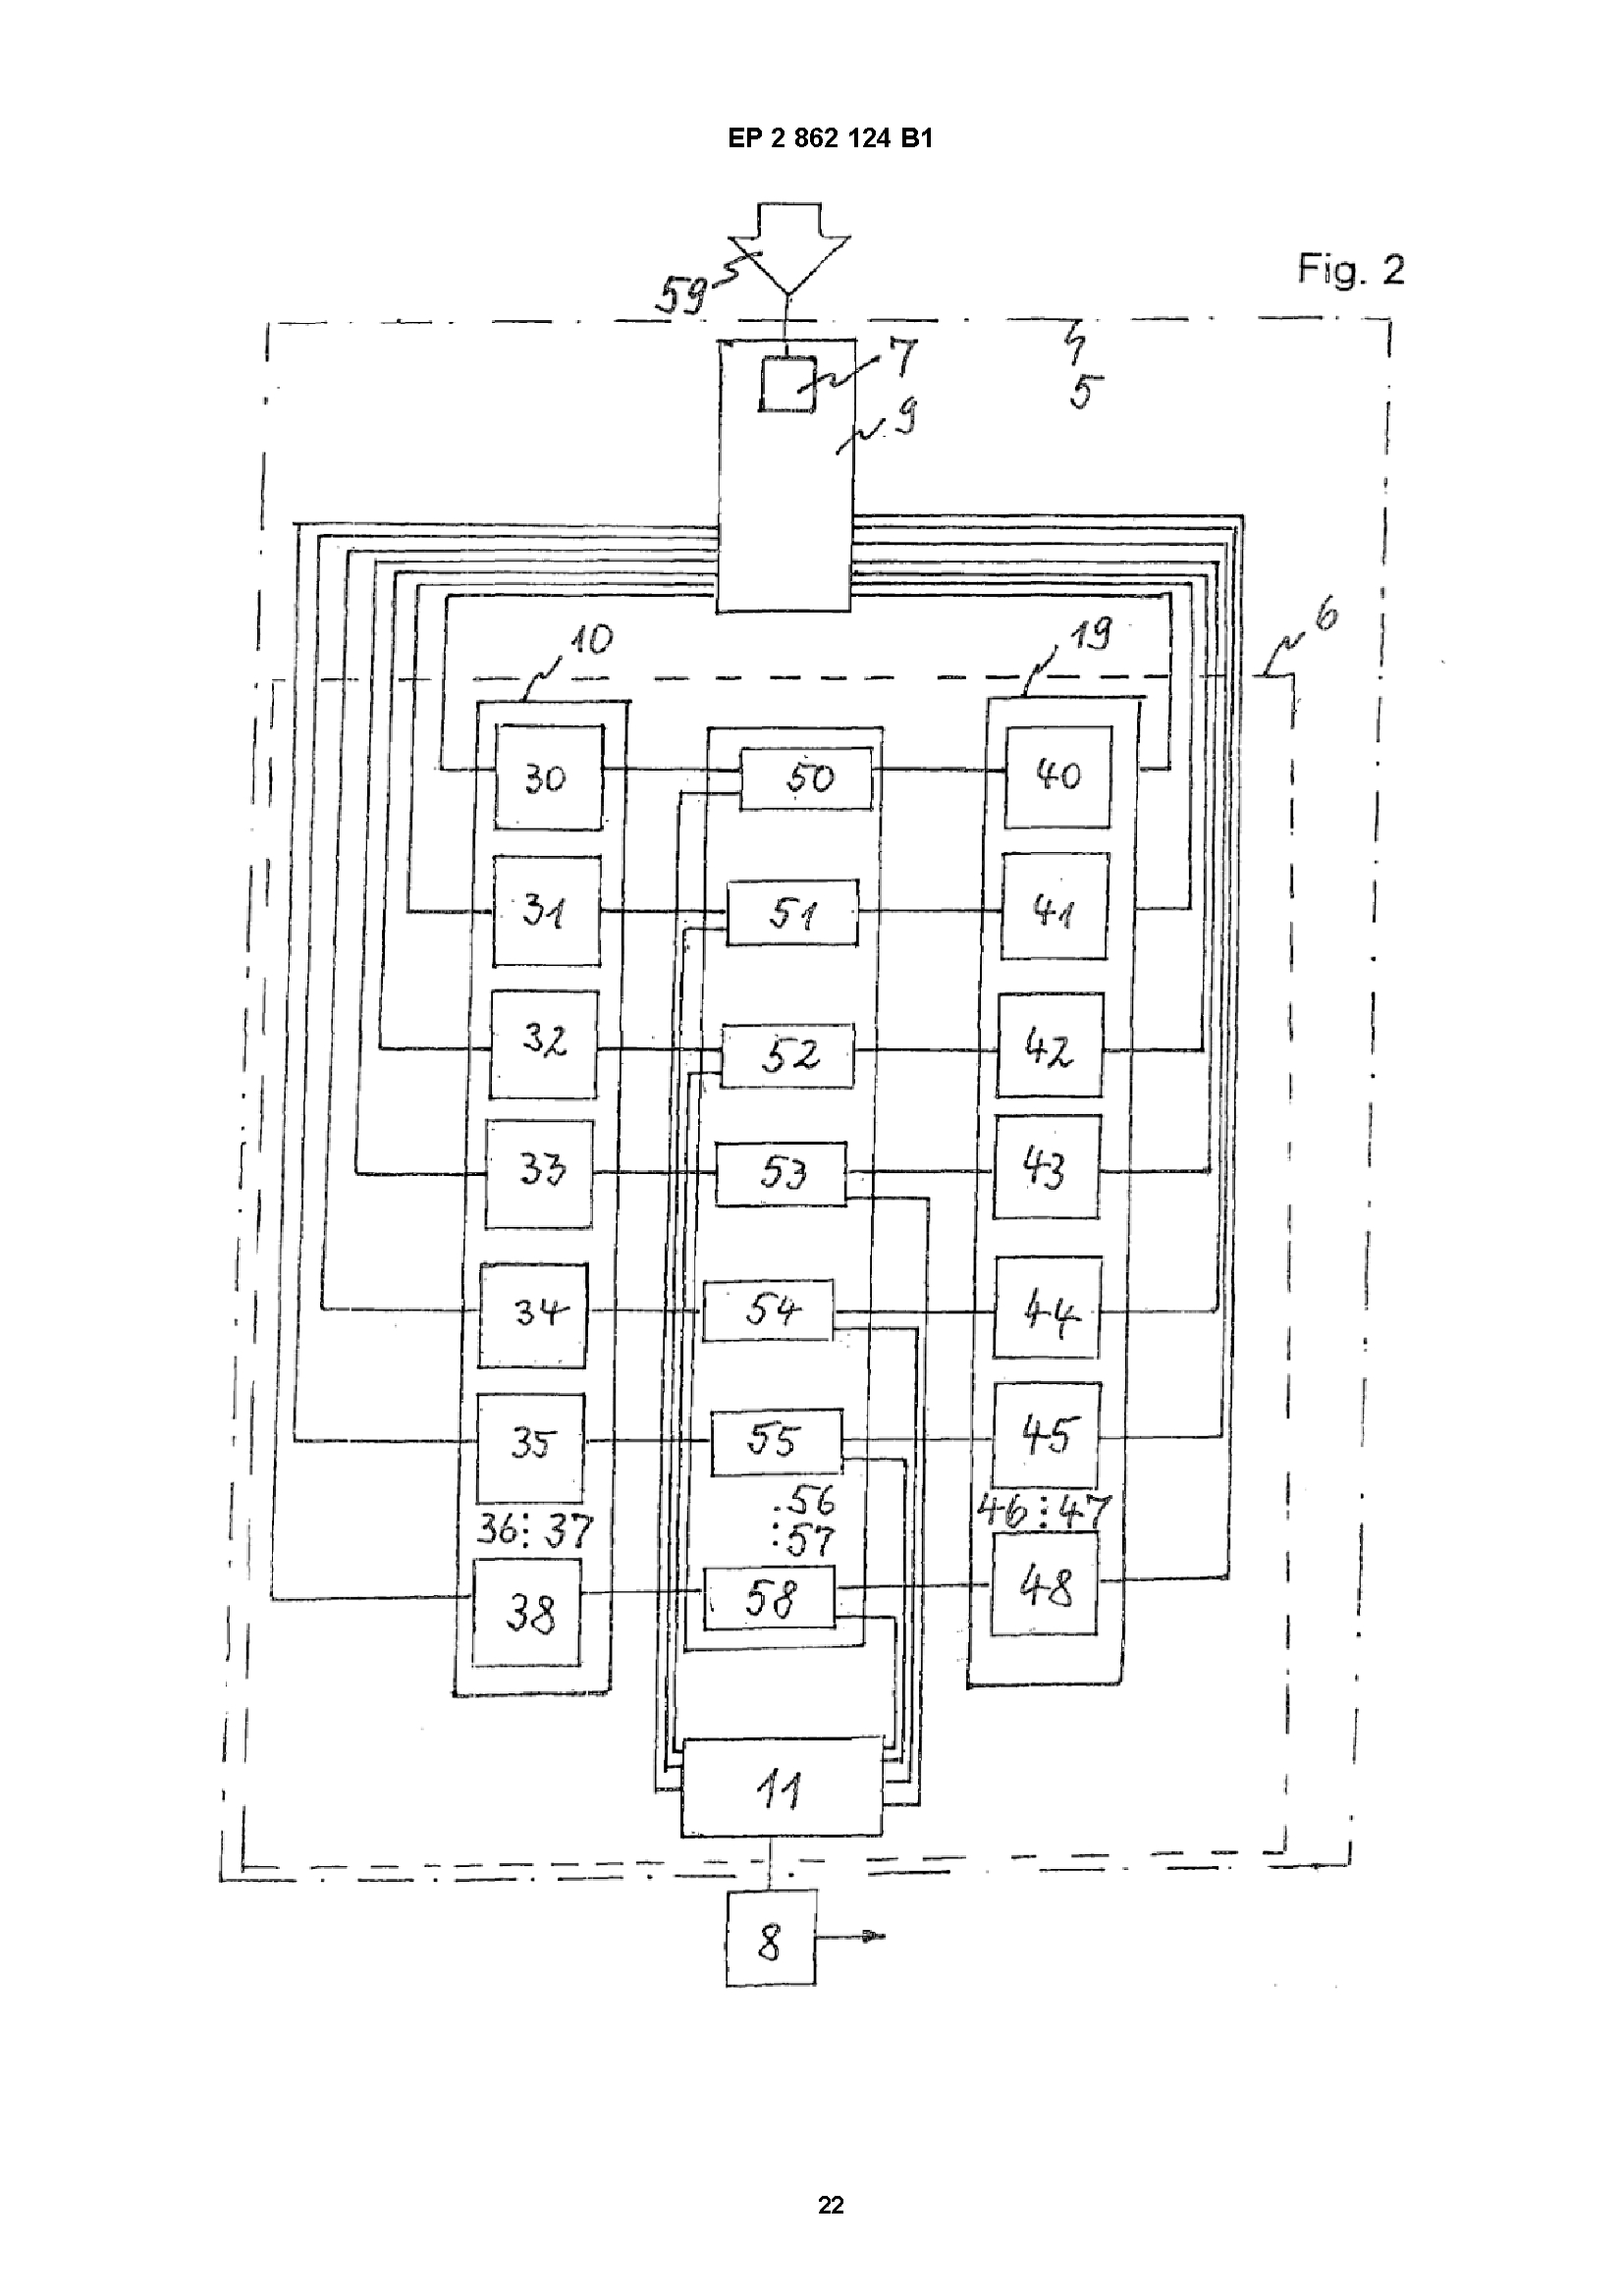 EP 2 862 124 B1
Fig. 2
59
7
5
9
6
10
19
30 50 40
31 51 41
32 52 42
33 53 43
34 54 44
35 55 45
.56
36⋮37 :57 46⋮47
38 58 48
11
8
22